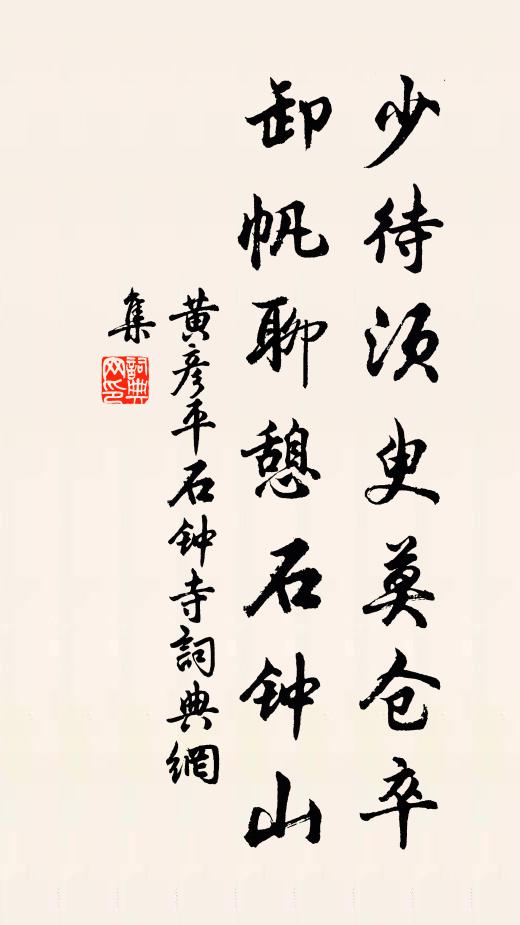 少待须叟莫仓卒
卸帆聊憩石钟山
黄彦平石钟寺詞典網
集
詞典
网印